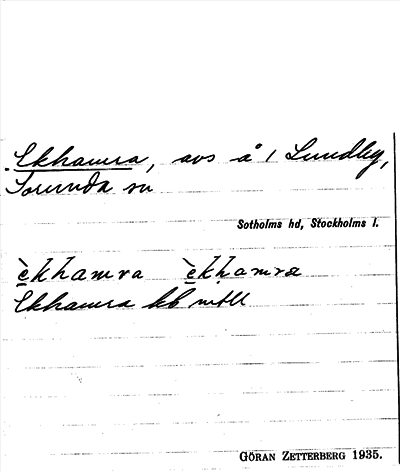 Ekhamra, avs å / Lundby,
Sorunda sn
Sotholms hd, Stockholms l.
è̱khamra è̱kḥamræ
Ekhamra kb mtll
GÖRAN ZETTERBERG 1935.